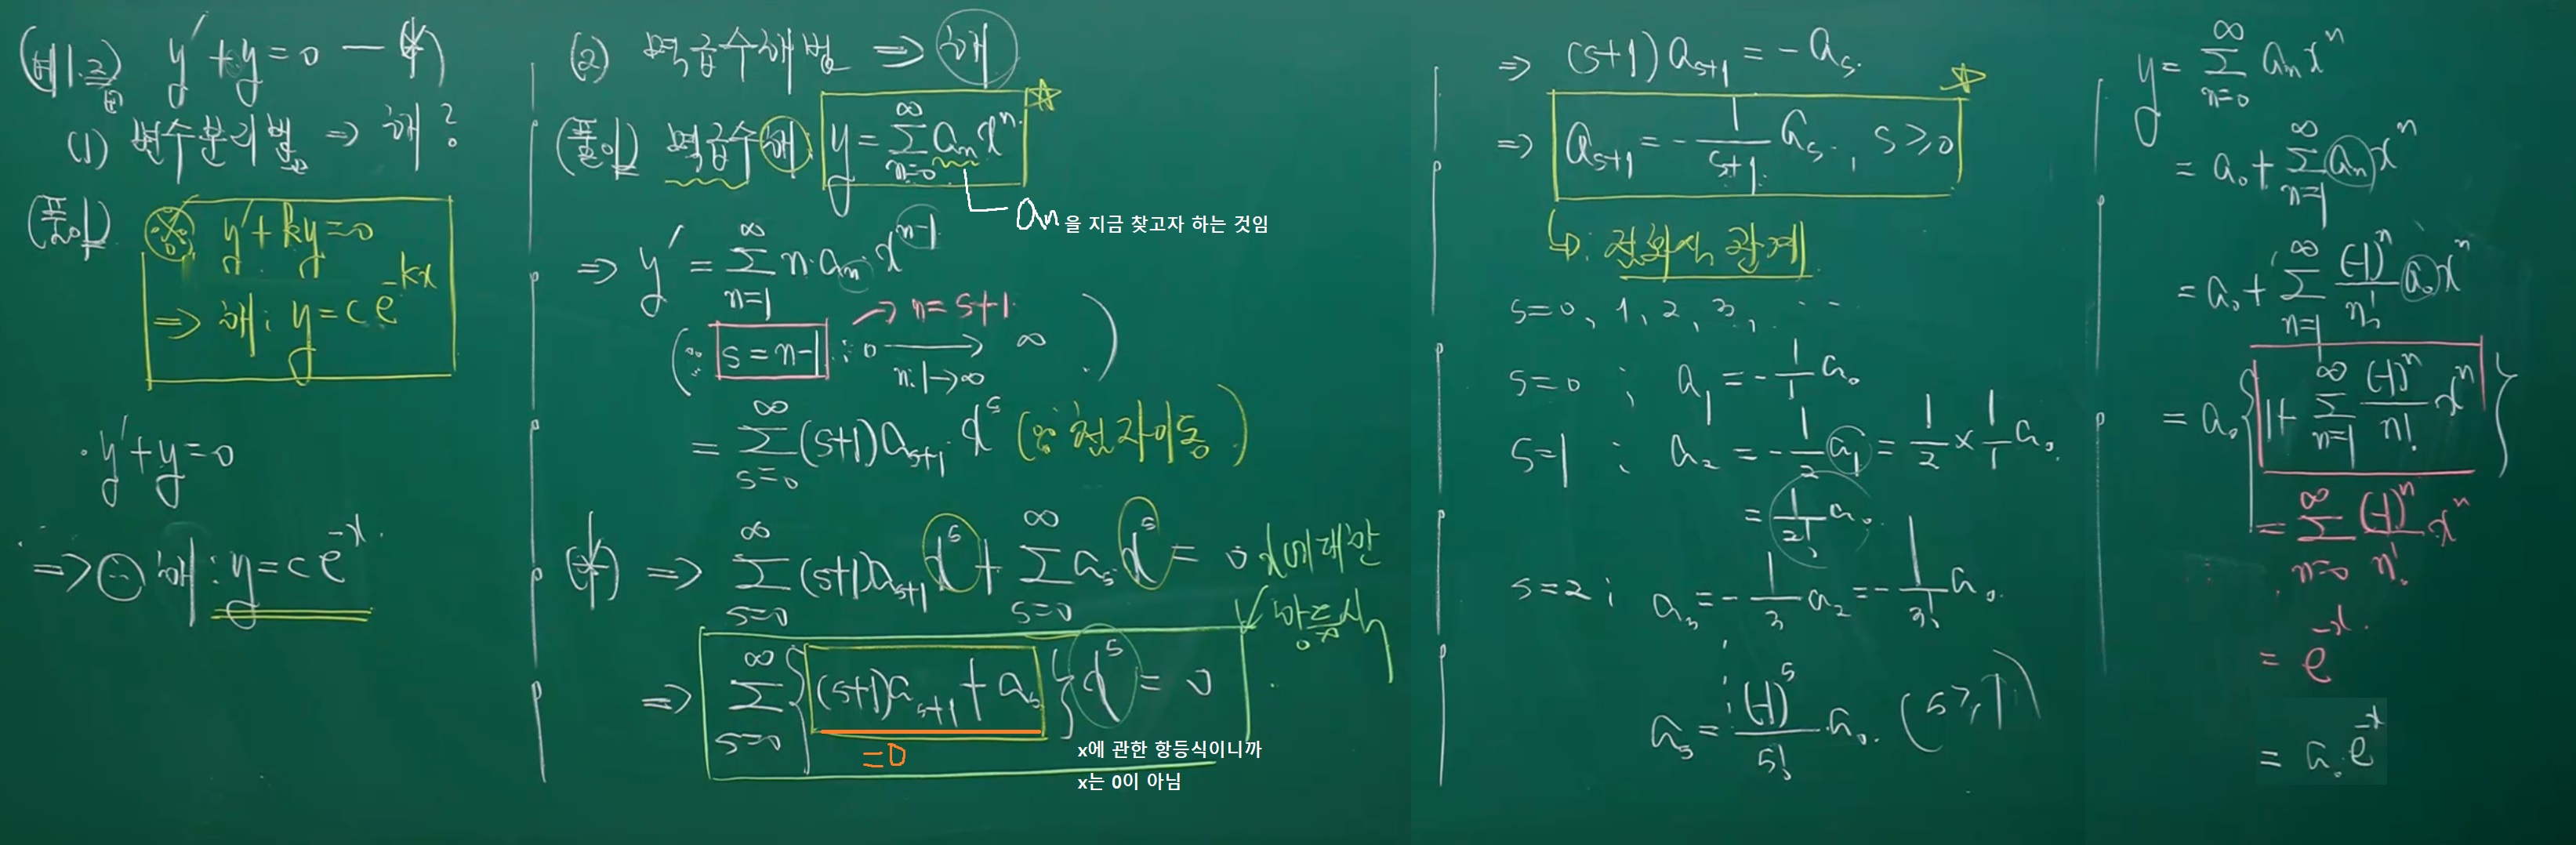 (예1.2) y' + y = 0 — (*)
(1) 변수분리법 => 해?
(풀이)
※ y' + ky = 0
=> 해: y = ce^{-kx}
· y' + y = 0
=> 해: y = ce^{-x}.
(2) 멱급수해법 => 해
(풀이) 멱급수해: y = Σ_{n=0}^{∞} a_n x^n ☆
a_n을 지금 찾고자 하는 것임
=> y' = Σ_{n=1}^{∞} n·a_n·x^{n-1}
→ n = s+1
(∵ s = n-1 : 0 → ∞
n: 1 → ∞ )
= Σ_{s=0}^{∞} (s+1)a_{s+1} x^s (∵ 첨자이동)
(*) => Σ_{s=0}^{∞} (s+1)a_{s+1} x^s + Σ_{s=0}^{∞} a_s x^s = 0
x에 대한
항등식
=> Σ_{s=0}^{∞} {(s+1)a_{s+1} + a_s} x^s = 0
=0
x에 관한 항등식이니까
x는 0이 아님
=> (s+1)a_{s+1} = -a_s.
=> a_{s+1} = -\frac{1}{s+1} a_s, s ≥ 0 ☆
↳: 점화식 관계
s = 0, 1, 2, 3, ...
s=0 ; a_1 = -\frac{1}{1} a_0
s=1 ; a_2 = -\frac{1}{2} a_1 = \frac{1}{2} × \frac{1}{1} a_0.
= \frac{1}{2!} a_0.
s=2 ; a_3 = -\frac{1}{3} a_2 = -\frac{1}{3!} a_0.
⋮
a_s = \frac{(-1)^s}{s!} a_0. (s ≥ 1)
y = Σ_{n=0}^{∞} a_n x^n
= a_0 + Σ_{n=1}^{∞} a_n x^n
= a_0 + Σ_{n=1}^{∞} \frac{(-1)^n}{n!} a_0 x^n
= a_0 {1 + Σ_{n=1}^{∞} \frac{(-1)^n}{n!} x^n}
= Σ_{n=0}^{∞} \frac{(-1)^n}{n!} x^n
= e^{-x}.
= a_0 e^{-x}